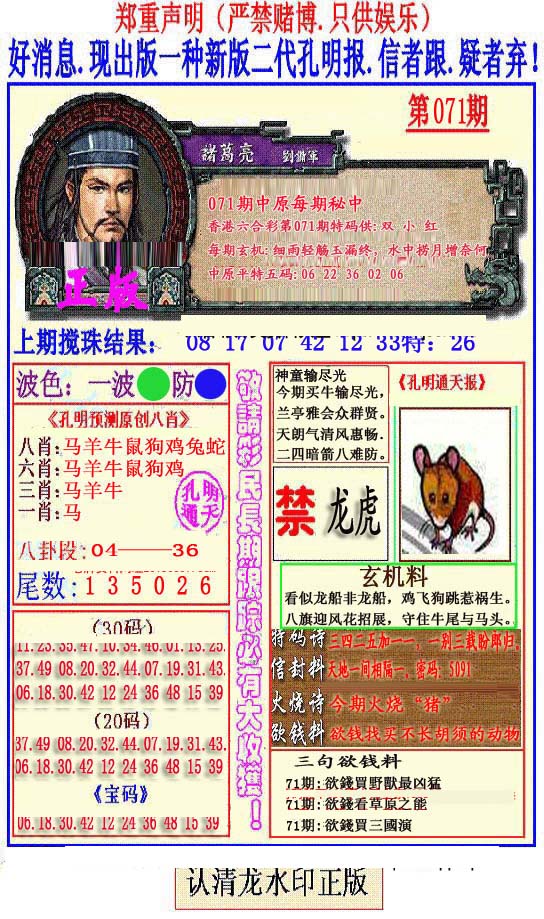 郑重声明（严禁赌博.只供娱乐）
好消息.现出版一种新版二代孔明报.信者跟.疑者弃!
第071期
諸葛亮 劉備軍
071期中原每期秘中
香港六合彩第071期特码供: 双 小 红
每期玄机: 细雨轻觞玉漏终，水中捞月增奈何
中原平特五码: 06 22 36 02 06
正版
上期搅珠结果: 08 17 07 42 12 33特: 26
波色: 一波 防
《孔明预测原创八肖》
八肖:马羊牛鼠狗鸡兔蛇
六肖:马羊牛鼠狗鸡
三肖:马羊牛
一肖:马
孔明
通天
八卦段:04——36
尾数:135026
(30码)
11.23.35.47.10.34.46.01.13.25.
37.49 08.20.32.44.07.19.31.43.
06.18.30.42 12 24 36 48 15 39
(20码)
37.49 08.20.32.44.07.19.31.43.
06.18.30.42 12 24 36 48 15 39
《宝码》
06.18.30.42 12 24 36 48 15 39
敬請彩民長期跟踪必有大收獲！
神童输尽光
今期买牛输尽光，
兰亭雅会众群贤。
天朗气清风惠畅.
二四暗箭八难防。
《孔明通天报》
禁 龙虎
玄机料
看似龙船非龙船，鸡飞狗跳惹祸生。
八旗迎风花招展，守住牛尾与马头。
特码诗 三四二五加一一，一别三载盼郎归。
信封料 天地一间相隔一，密码：5091
火烧诗 今期火烧“猪”
欲钱料 欲钱找买不长胡须的动物
三句欲钱料
71期:欲錢買野獸最凶猛
71期:欲錢看草原之能
71期:欲錢買三國演
认清龙水印正版